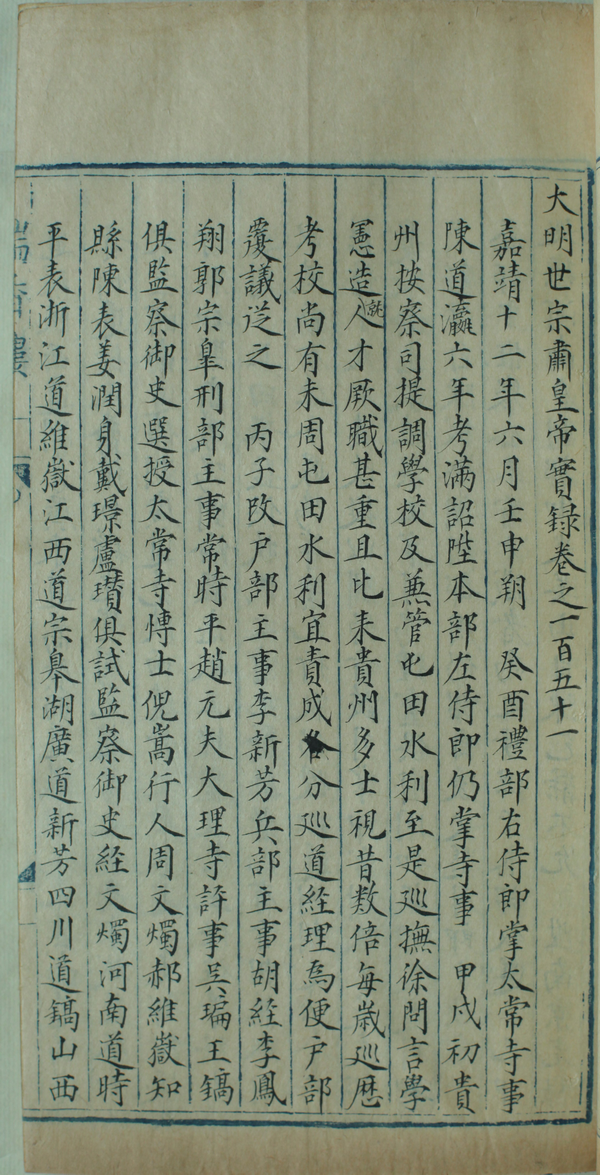 大明世宗肅皇帝實録卷之一百五十一
嘉靖十二年六月壬申朔　癸酉禮部右侍郎掌太常寺事
陳道瀛六年考滿詔陞本部左侍郎仍掌寺事　甲戌初貴
州按察司提調學校及兼管屯田水利至是巡撫徐問言學
憲造就人才厥職甚重且比来貴州多士視昔数倍每歳巡歴
考校尚有未周屯田水利宜責成各分巡道經理為便户部
覆議従之　丙子改户部主事李新芳兵部主事胡經李鳳
翔郭宗臯刑部主事常時平趙元夫大理寺許事吴瑞王鎬
俱監察御史選授太常寺愽士倪嵩行人周文燭郝維嶽知
縣陳表姜潤身戴璟盧瓚俱試監察御史経文燭河南道時
平表浙江道維嶽江西道宗皐湖廣道新芳四川道鎬山西